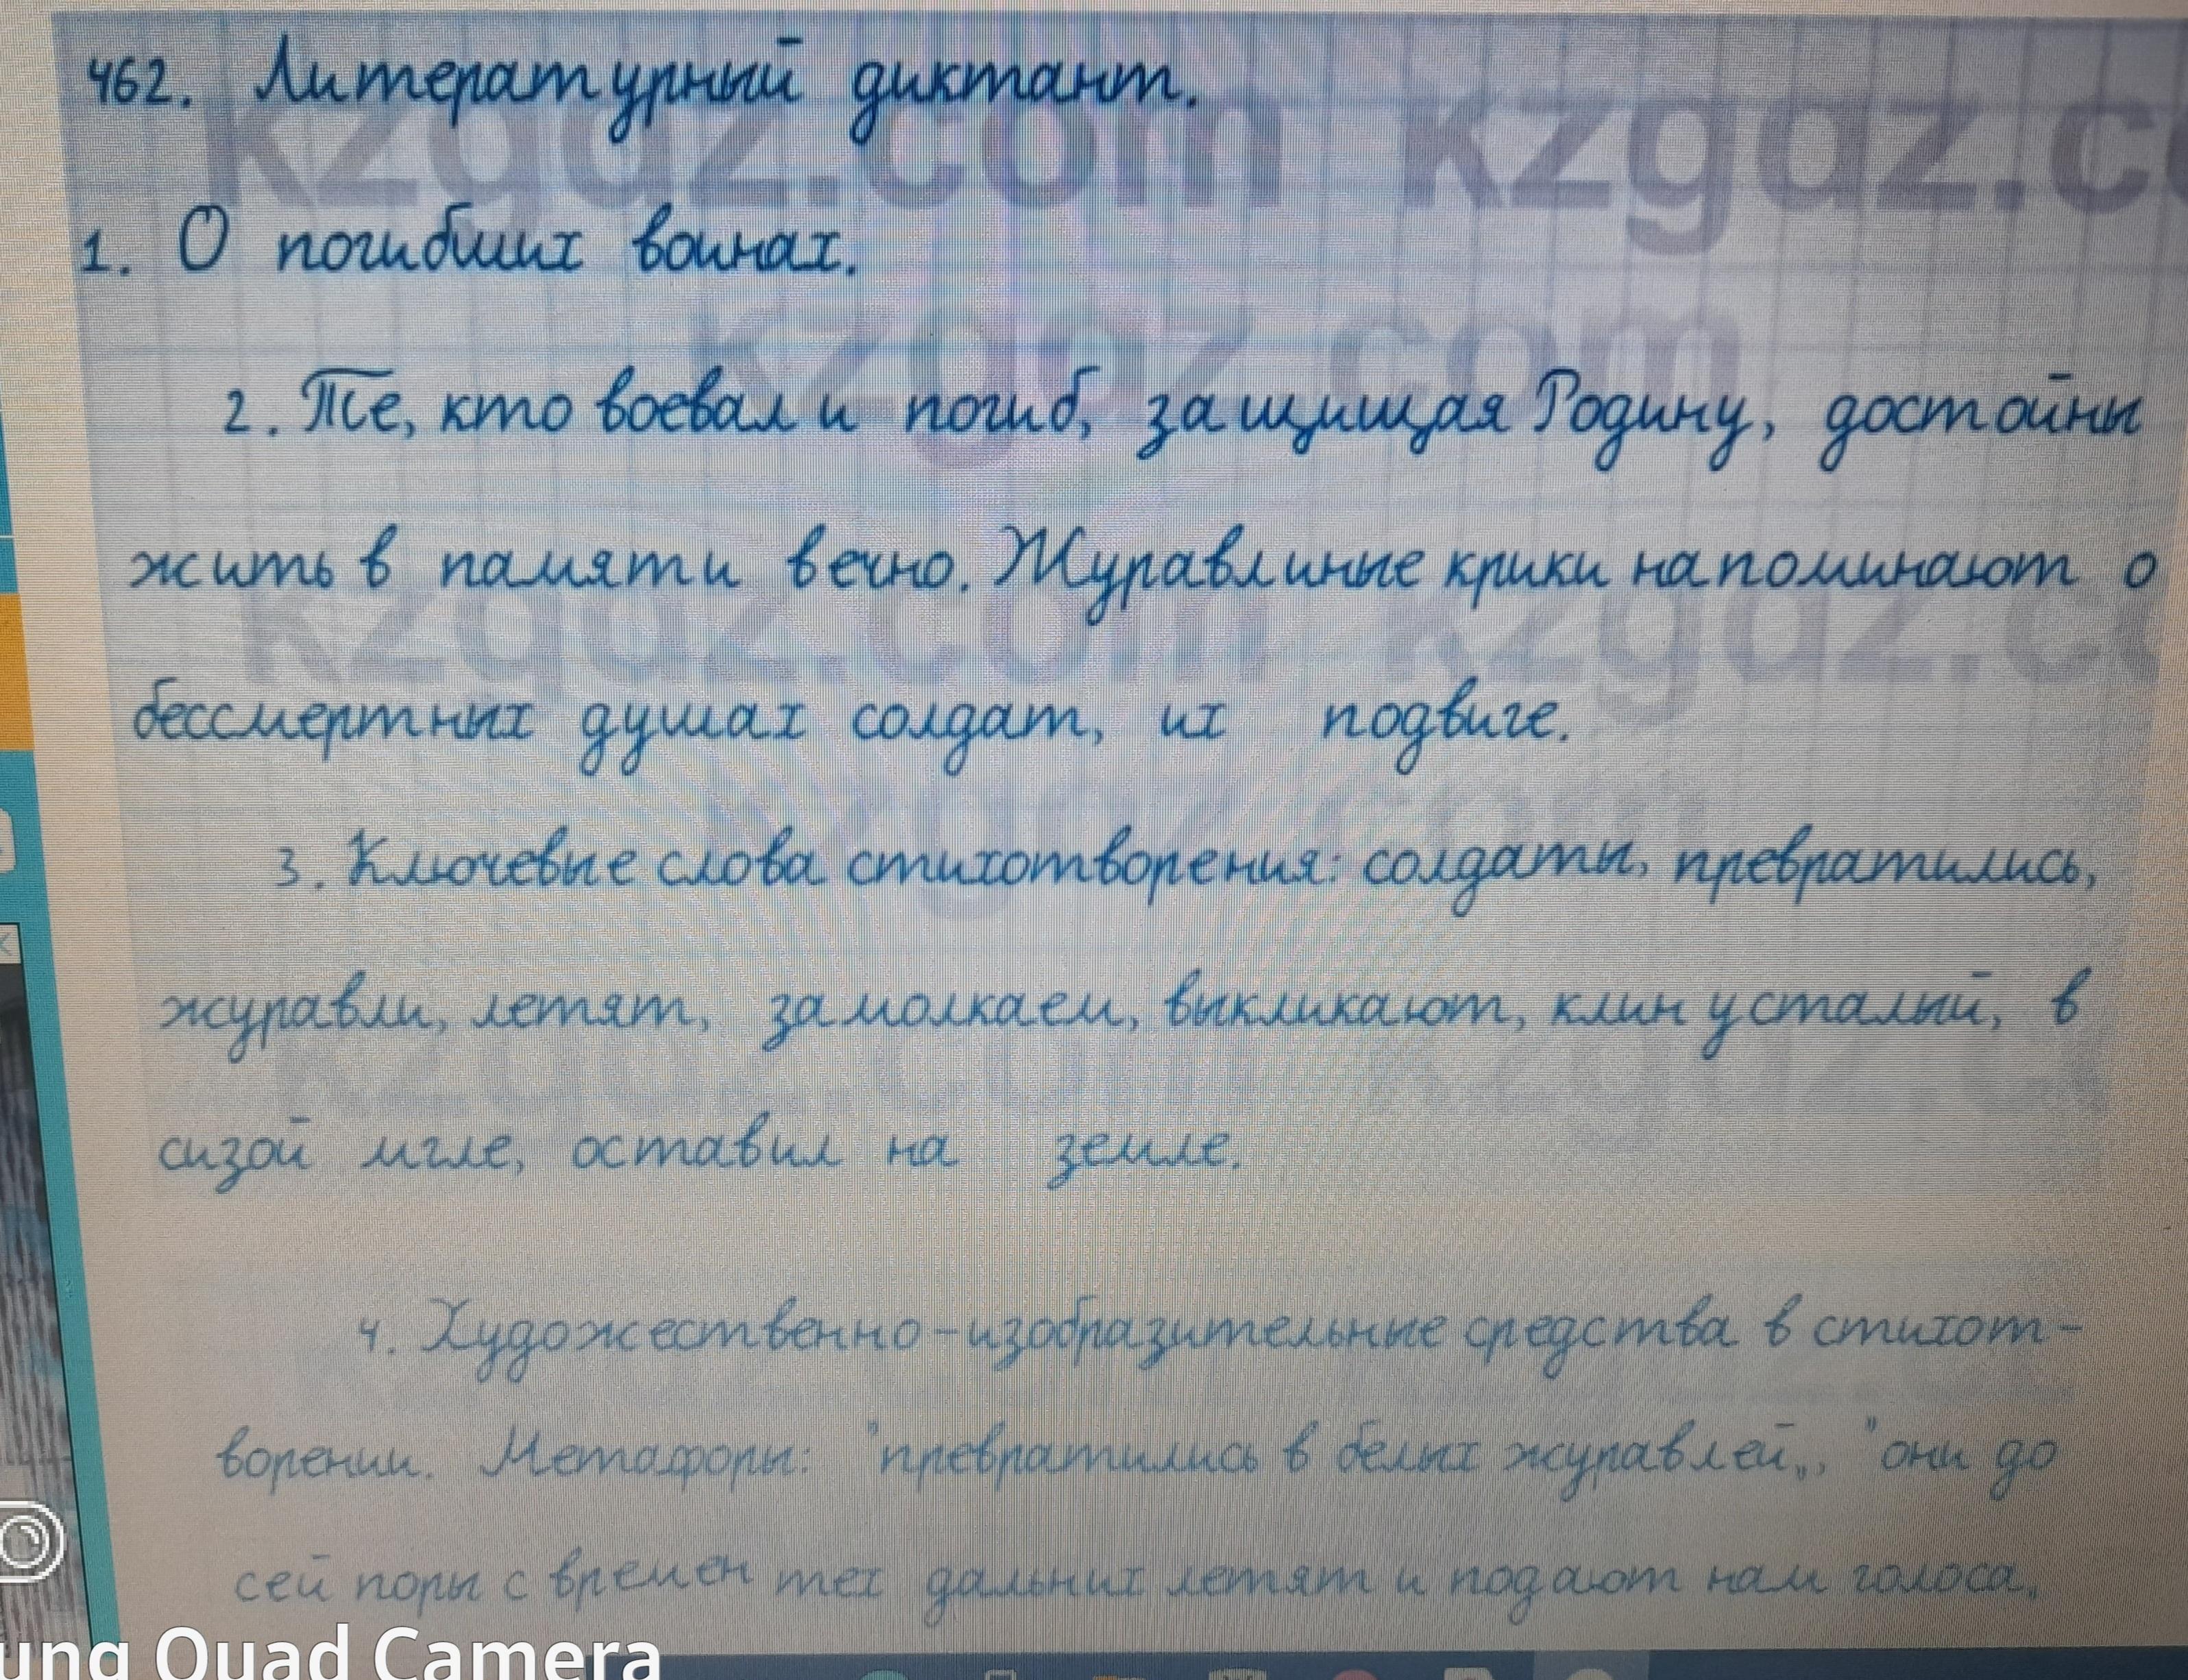 462. Литературный диктант.
1. О погибших воинах.
2. Те, кто воевал и погиб, защищая Родину, достойны
жить в памяти вечно. Журавлиные крики напоминают о
бессмертных душах солдат, их подвиге.
3. Ключевые слова стихотворения: солдаты, превратились,
журавли, летят, замолкаем, выкликают, клин усталый, в
сизой мгле, оставил на земле.
4. Художественно-изобразительные средства в стихот-
ворении. Метафоры: "превратились в белых журавлей„, "они до
сей поры с времен тех дальних летят и подают нам голоса„
kzgdz.com kzgdz.co
kzgdz.com
kzgdz.com kzgdz.co
kzgdz.com
kzgdz.com kzgdz.c
ung Quad Camera